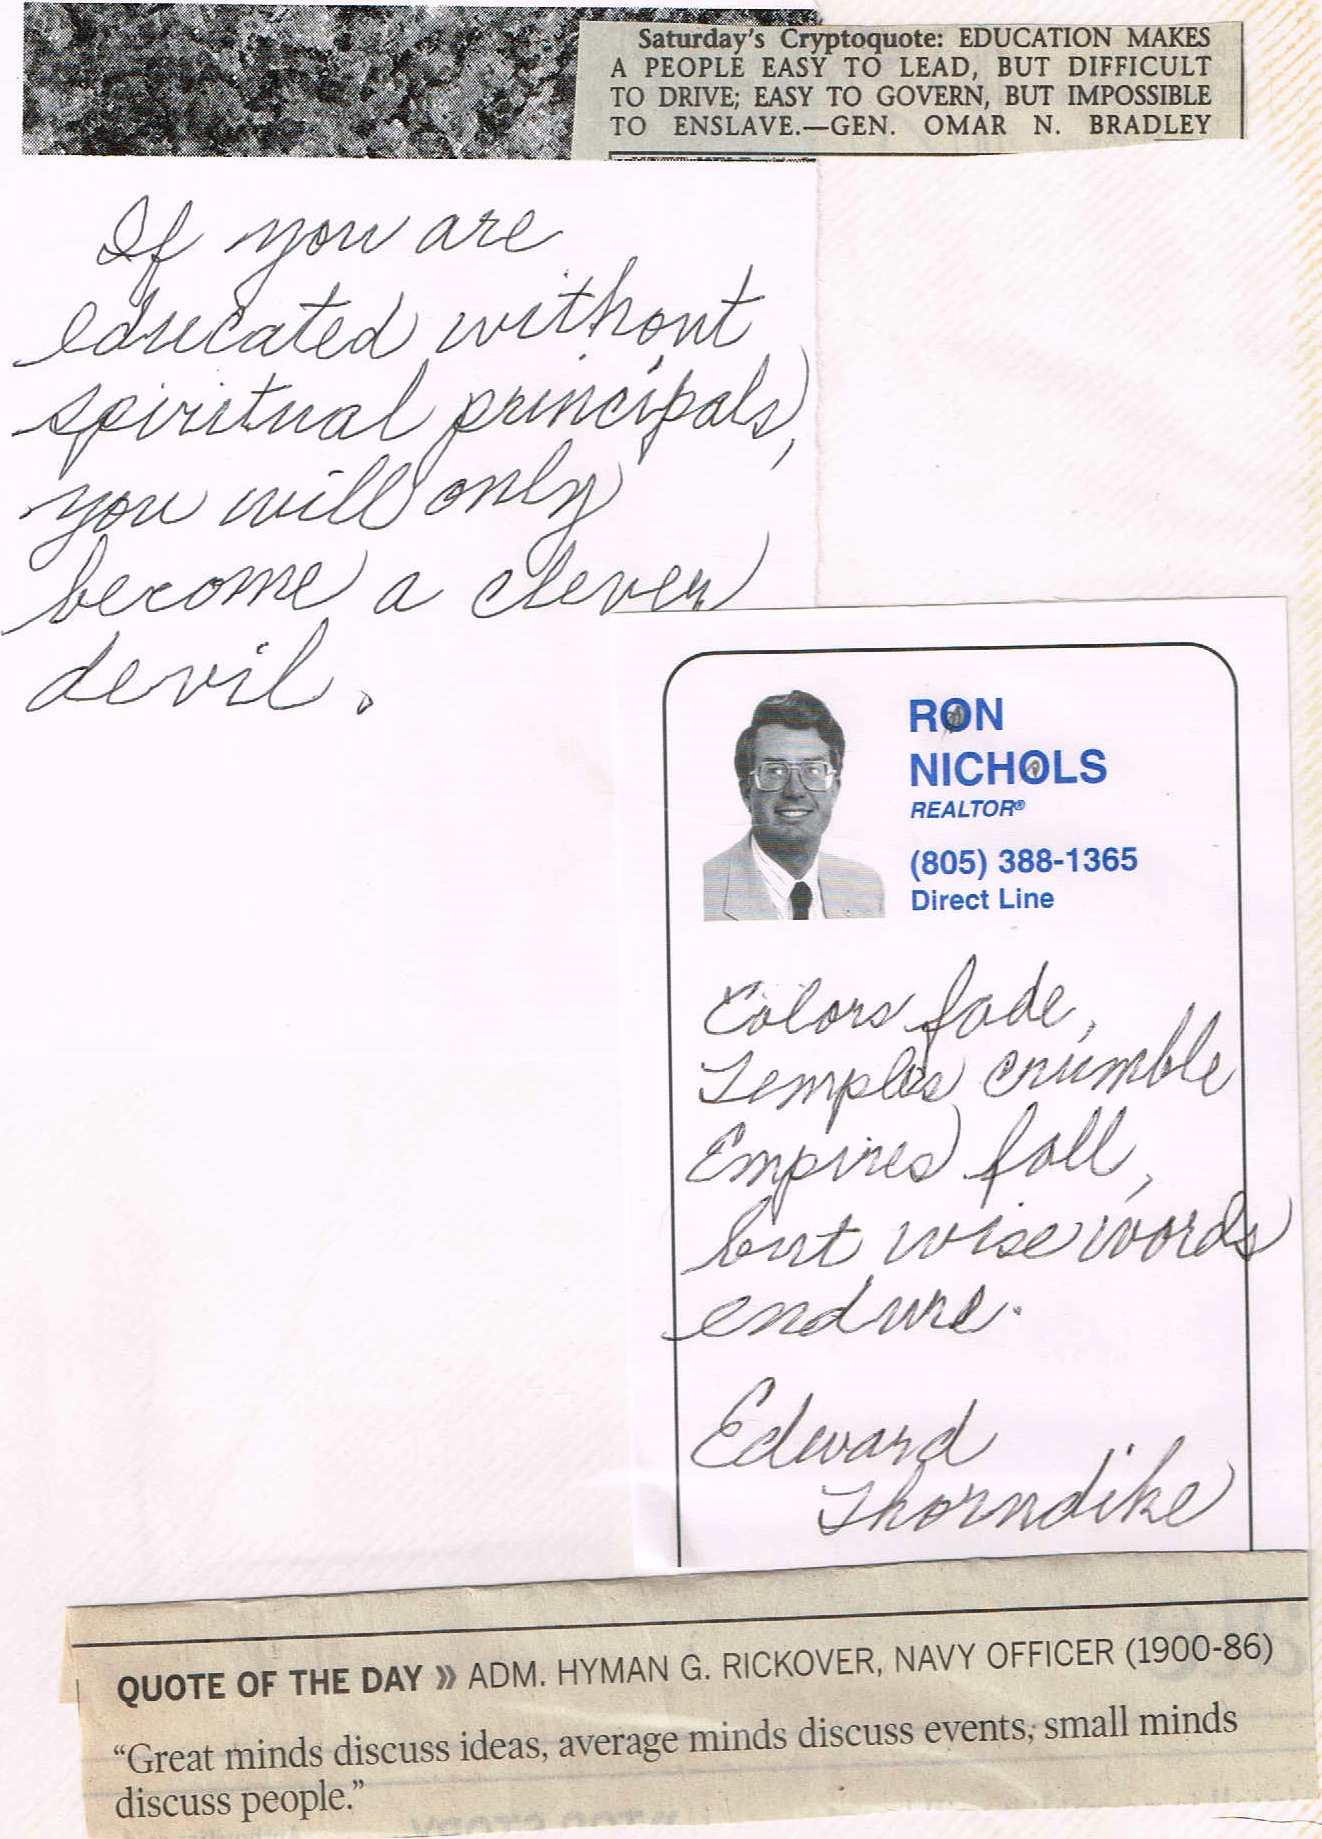 Saturday's Cryptoquote: EDUCATION MAKES
A PEOPLE EASY TO LEAD, BUT DIFFICULT
TO DRIVE; EASY TO GOVERN, BUT IMPOSSIBLE
TO ENSLAVE.—GEN. OMAR N. BRADLEY
If you are
educated without
spiritual principals,
you will only
become a clever
devil.
RON
NICHOLS
REALTOR®
(805) 388-1365
Direct Line
Colors fade,
Temples crumble
Empires fall,
but wise words
endure.
Edward
Thorndike
QUOTE OF THE DAY » ADM. HYMAN G. RICKOVER, NAVY OFFICER (1900-86)
“Great minds discuss ideas, average minds discuss events, small minds
discuss people.”